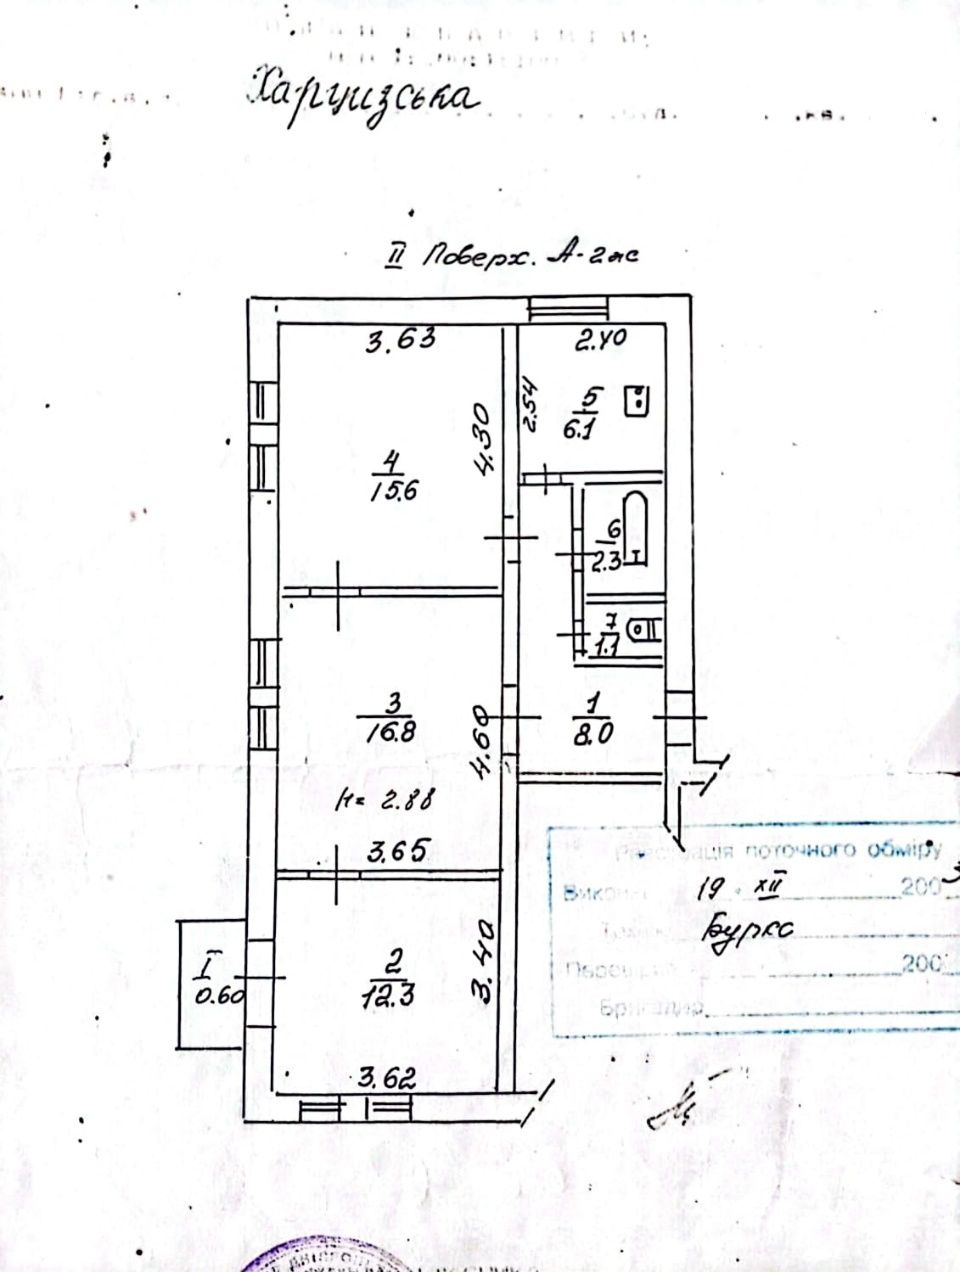 Харцизська
буд. кв.
II Поверх. А-2жс
3.63
2.40
2.54
5
6.1
4.30
4
15.6
6
2.3
7
1.1
3
16.8
4.60
1
8.0
н= 2.88
3.65
поточного обміру
19 XII 200 3
Бурко
200
Бригадир
I
0.60
2
12.3
3.40
3.62